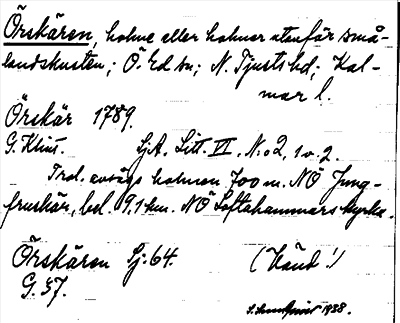 Örskären, holme eller holmar utanför små-
landskusten; Ö. Ed sn; N. Tjusts hd; Kal-
mar l.
Örskär 1789.
G. Klint. SjA. Litt. VI, N:o 2, 1 o. 2.
Trol. avses holmen 700 m. NÖ Jung-
fruskär, bel. 9,1 km. NÖ Loftahammars kyrka.
Örskären Sj. 64. (Känd!)
G. 37.
1938.